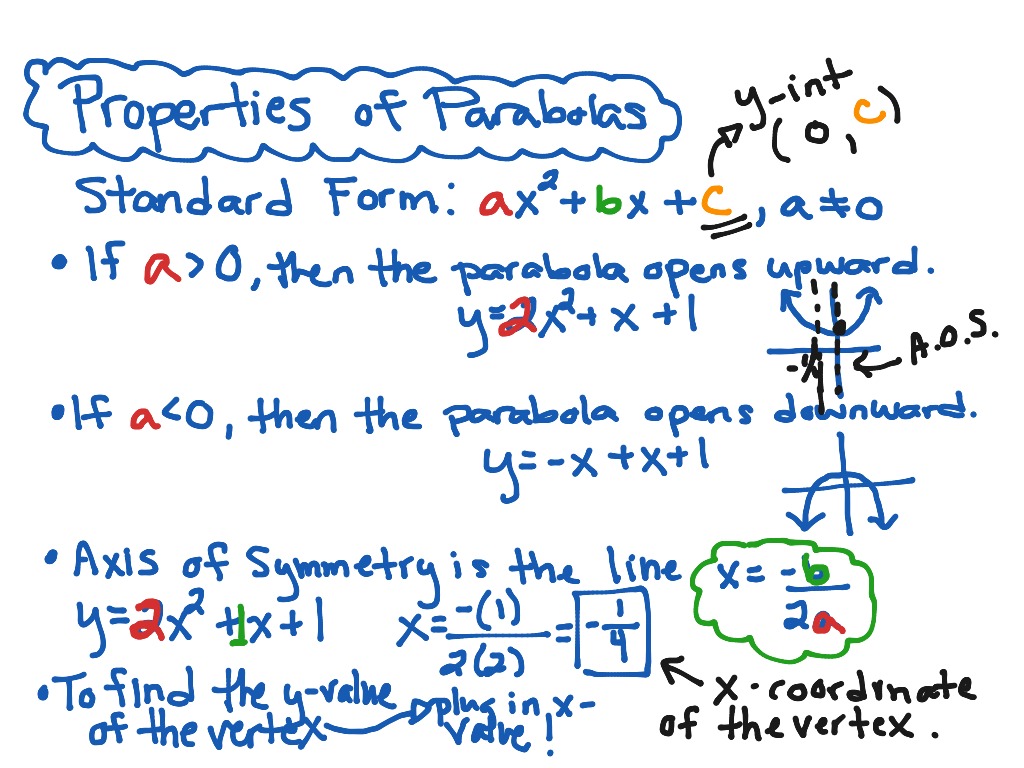 Properties of Parabolas
y-int
(0, c)
Standard Form: ax² + bx + c, a ≠ 0
• If a > 0, then the parabola opens upward.
y = 2x² + x + 1
A.O.S.
• If a < 0, then the parabola opens downward.
y = -x + x + 1
• Axis of Symmetry is the line x = -b/2a
y = 2x² + 1x + 1 x = -(1)/2(2) = -1/4
• To find the y-value of the vertex plug in x-value!
x-coordinate
of the vertex.